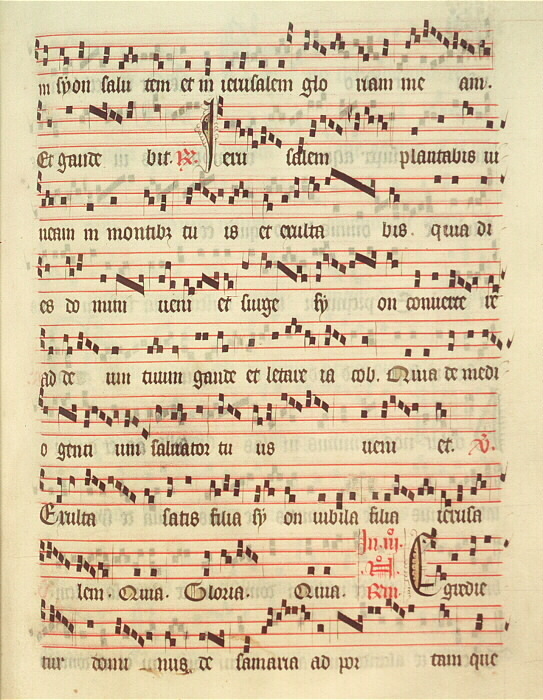 in syon salu tem et in ierusalem glo riam me am.
Et gaude bit. R. Ieru salem plantabis vi
neam in montibz tu is et exulta bis. quia di
es do mini veni et surge sy on conuerte re
ad de um tuum gaude et letare ia cob. Quia de medi
o genti um saluator tu us veni et. V.
Exulta satis filia sy on iubila filia ierusa
lem. Quia. Gloria. Quia. In. iij. Egredie
tur domi nus de samaria ad por tam que